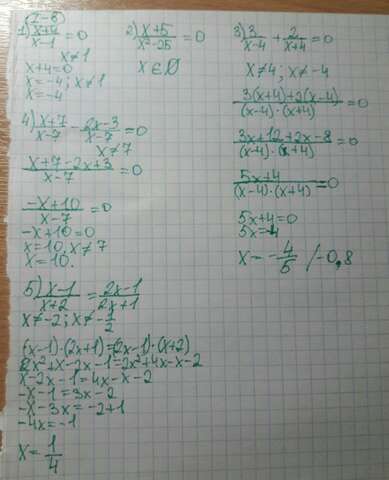 (I-B)
1) (x+4)/(x-1) = 0
x≠1
x+4=0
x=-4; x≠1
x=-4
2) (x+5)/(x²-25) = 0
x∈∅
3) 3/(x-4) + 2/(x+4) = 0
x≠4; x≠-4
(3(x+4)+2(x-4))/((x-4)·(x+4)) = 0
(3x+12+2x-8)/((x-4)·(x+4)) = 0
(5x+4)/((x-4)·(x+4)) = 0
5x+4=0
5x=-4
x=-4/5 /-0,8
4) (x+7)/(x-7) - (2x-3)/(x-7) = 0
x≠7
(x+7-2x+3)/(x-7) = 0
(-x+10)/(x-7) = 0
-x+10=0
x=10, x≠7
x=10.
5) (x-1)/(x+2) = (2x-1)/(2x+1)
x≠-2; x≠-1/2
(x-1)·(2x+1)=(2x-1)·(x+2)
2x²+x-2x-1=2x²+4x-x-2
x-2x-1=4x-x-2
-x-1=3x-2
-x-3x=-2+1
-4x=-1
x=1/4